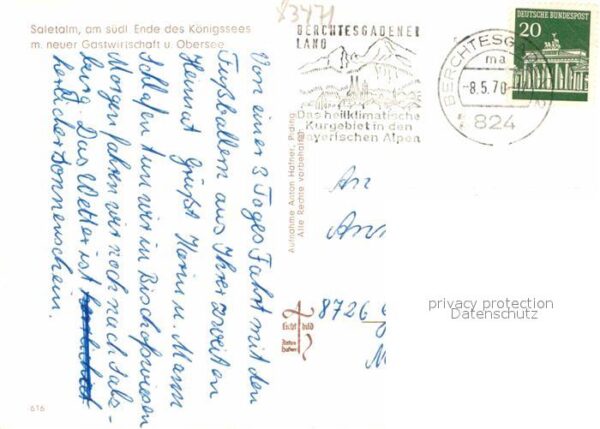 Saletalm, am südl. Ende des Königssees
m. neuer Gastwirtschaft u. Obersee
83471
BERCHTESGADENER
LAND
Das heilklimatische
Kurgebiet in den
Bayerischen Alpen
BERCHTESGA
ma
-8.5.70-
824
DEUTSCHE BUNDESPOST
20
Von einer 3 Tages Fahrt mit den
Fußballern aus Ihrer zweiten
Heimat Grüßt Herin u. Mann
Schlafen tun wir in Bischofswiesen
Morgen fahren wir noch nach Salz-
burg. Das Wetter ist
herrlicher Sonnenschein.
Aufnahme Anton Hafner, Piding
Alle Rechte vorbehalten
An
8726
Licht bild
Anton
Hafner
privacy protection
Datenschutz
616